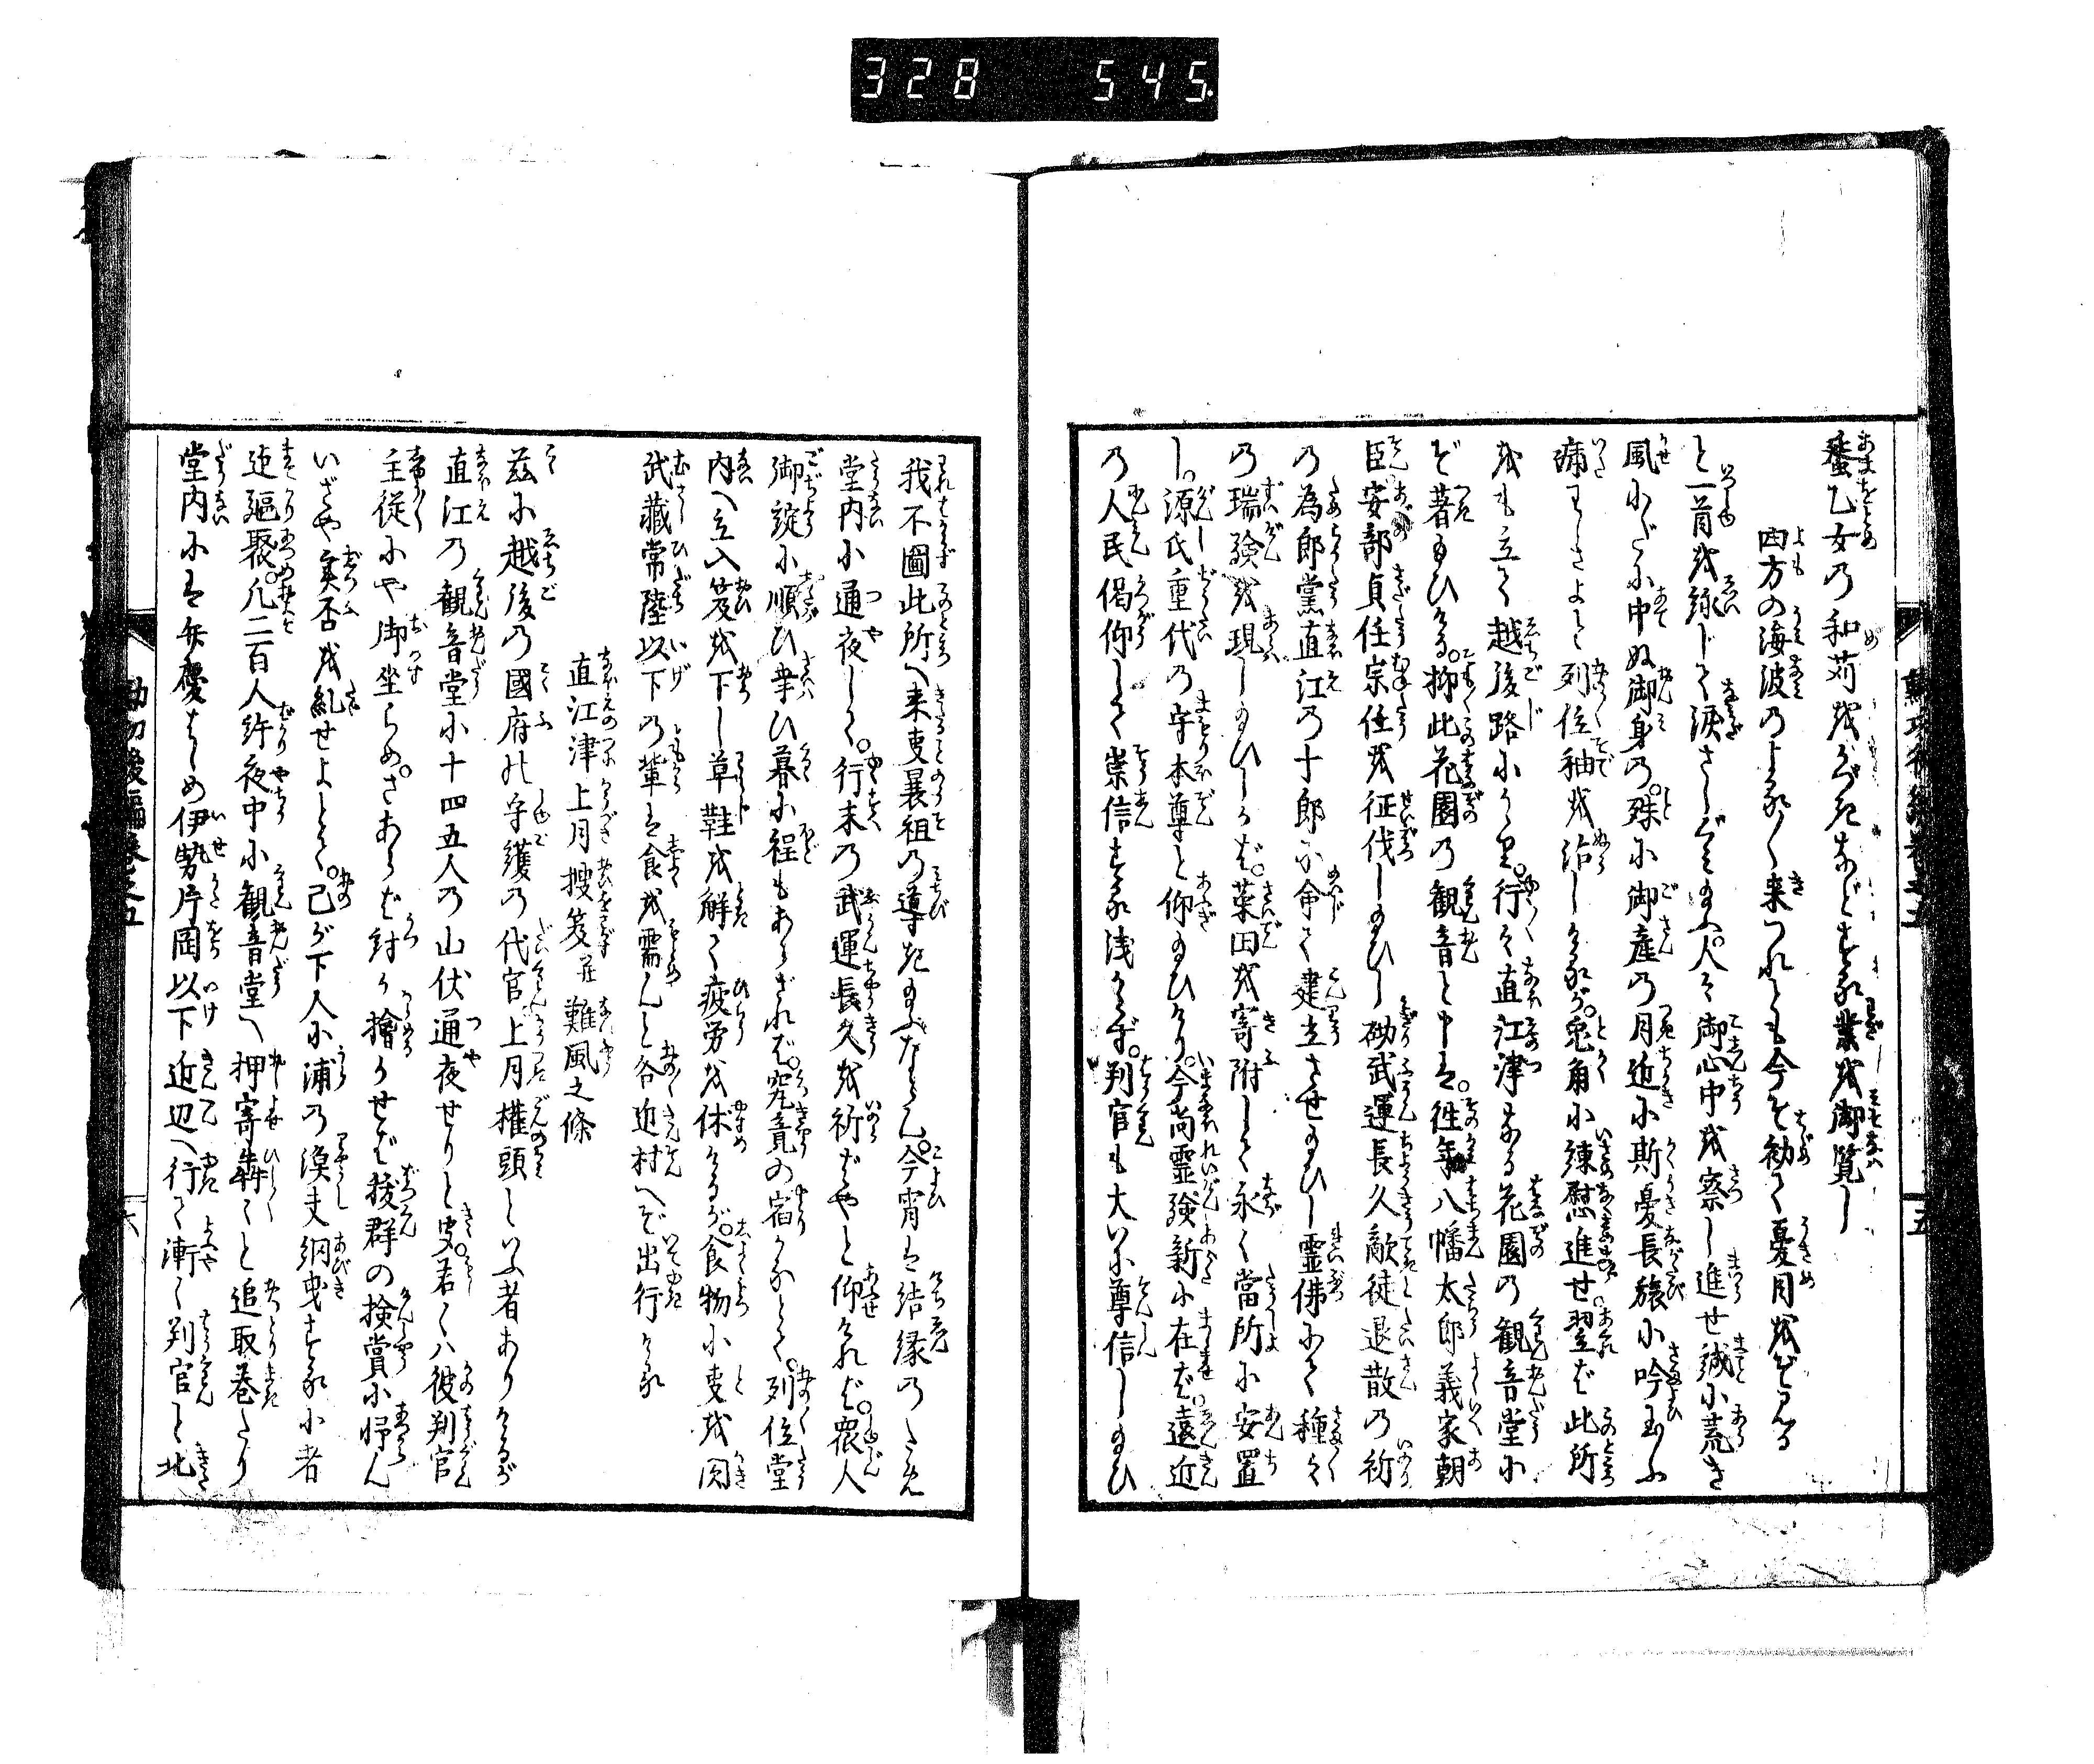 328 545
蜑乙女の和苅をかづきなどする業を御覧し
四方の海波のよる〳〵来つれども今ぞ初て憂目をば見る
と一首を詠じて涙さしぐみ給ふ人々御心中を察し進せ誠に荒き
風にだに中ぬ御身の。殊に御産の月近に斯憂長旅に吟玉ふ
痛はしさよと列位袖を沾しけるが。兎角に練慰進せ。翌ば此所
をも立て越後路にかゝり。行々直江津なる花園の観音堂に
ぞ著給ひける。抑此花園の観音と申は。往年八幡太郎義家朝
臣安部貞任宗任を征伐し給ひし砌武運長久敵徒退散の祈
の為郎黨直江の十郎に命て建立させ給ひし霊佛にて種々
の瑞験を現し給ひしかば。菜田を寄附して永く當所に安置
し。源氏重代の守本尊と仰給ひけり。今尚霊験新に在ば遠近
の人民偈仰して崇信する浅からず。判官も大いに尊信し給ひ
我不圖此所へ来吏曩祖の導き給ふならん。今宵は結縁のため
堂内に通夜して。行末の武運長久を祈ばやと仰ければ。衆人
御諚に順ひ幸ひ暮に程もあらざれば。究竟の宿かなとて。列位堂
内へ立入笈を下し草鞋を解て疲労を休けるが。食物に吏を闕
武藏常陸以下の輩は食を需んと各近村へぞ出行ける
直江津上月捜笈並難風之條
茲に越後の國府の守護の代官上月權頭といふ者ありけるが
直江の観音堂に十四五人の山伏通夜せりと吏。若くハ彼判官
主従にや御坐らめ。さあらば討か擒かせば抜群の検賞に悸ん
いざや実否を糺せよとて。己が下人に浦の漁夫網曳する小者
迄驅聚。凡二百人許夜中に観音堂へ押寄犇々と追取巻たり
堂内には弁慶はじめ伊勢片岡以下近辺へ行て漸く判官と北